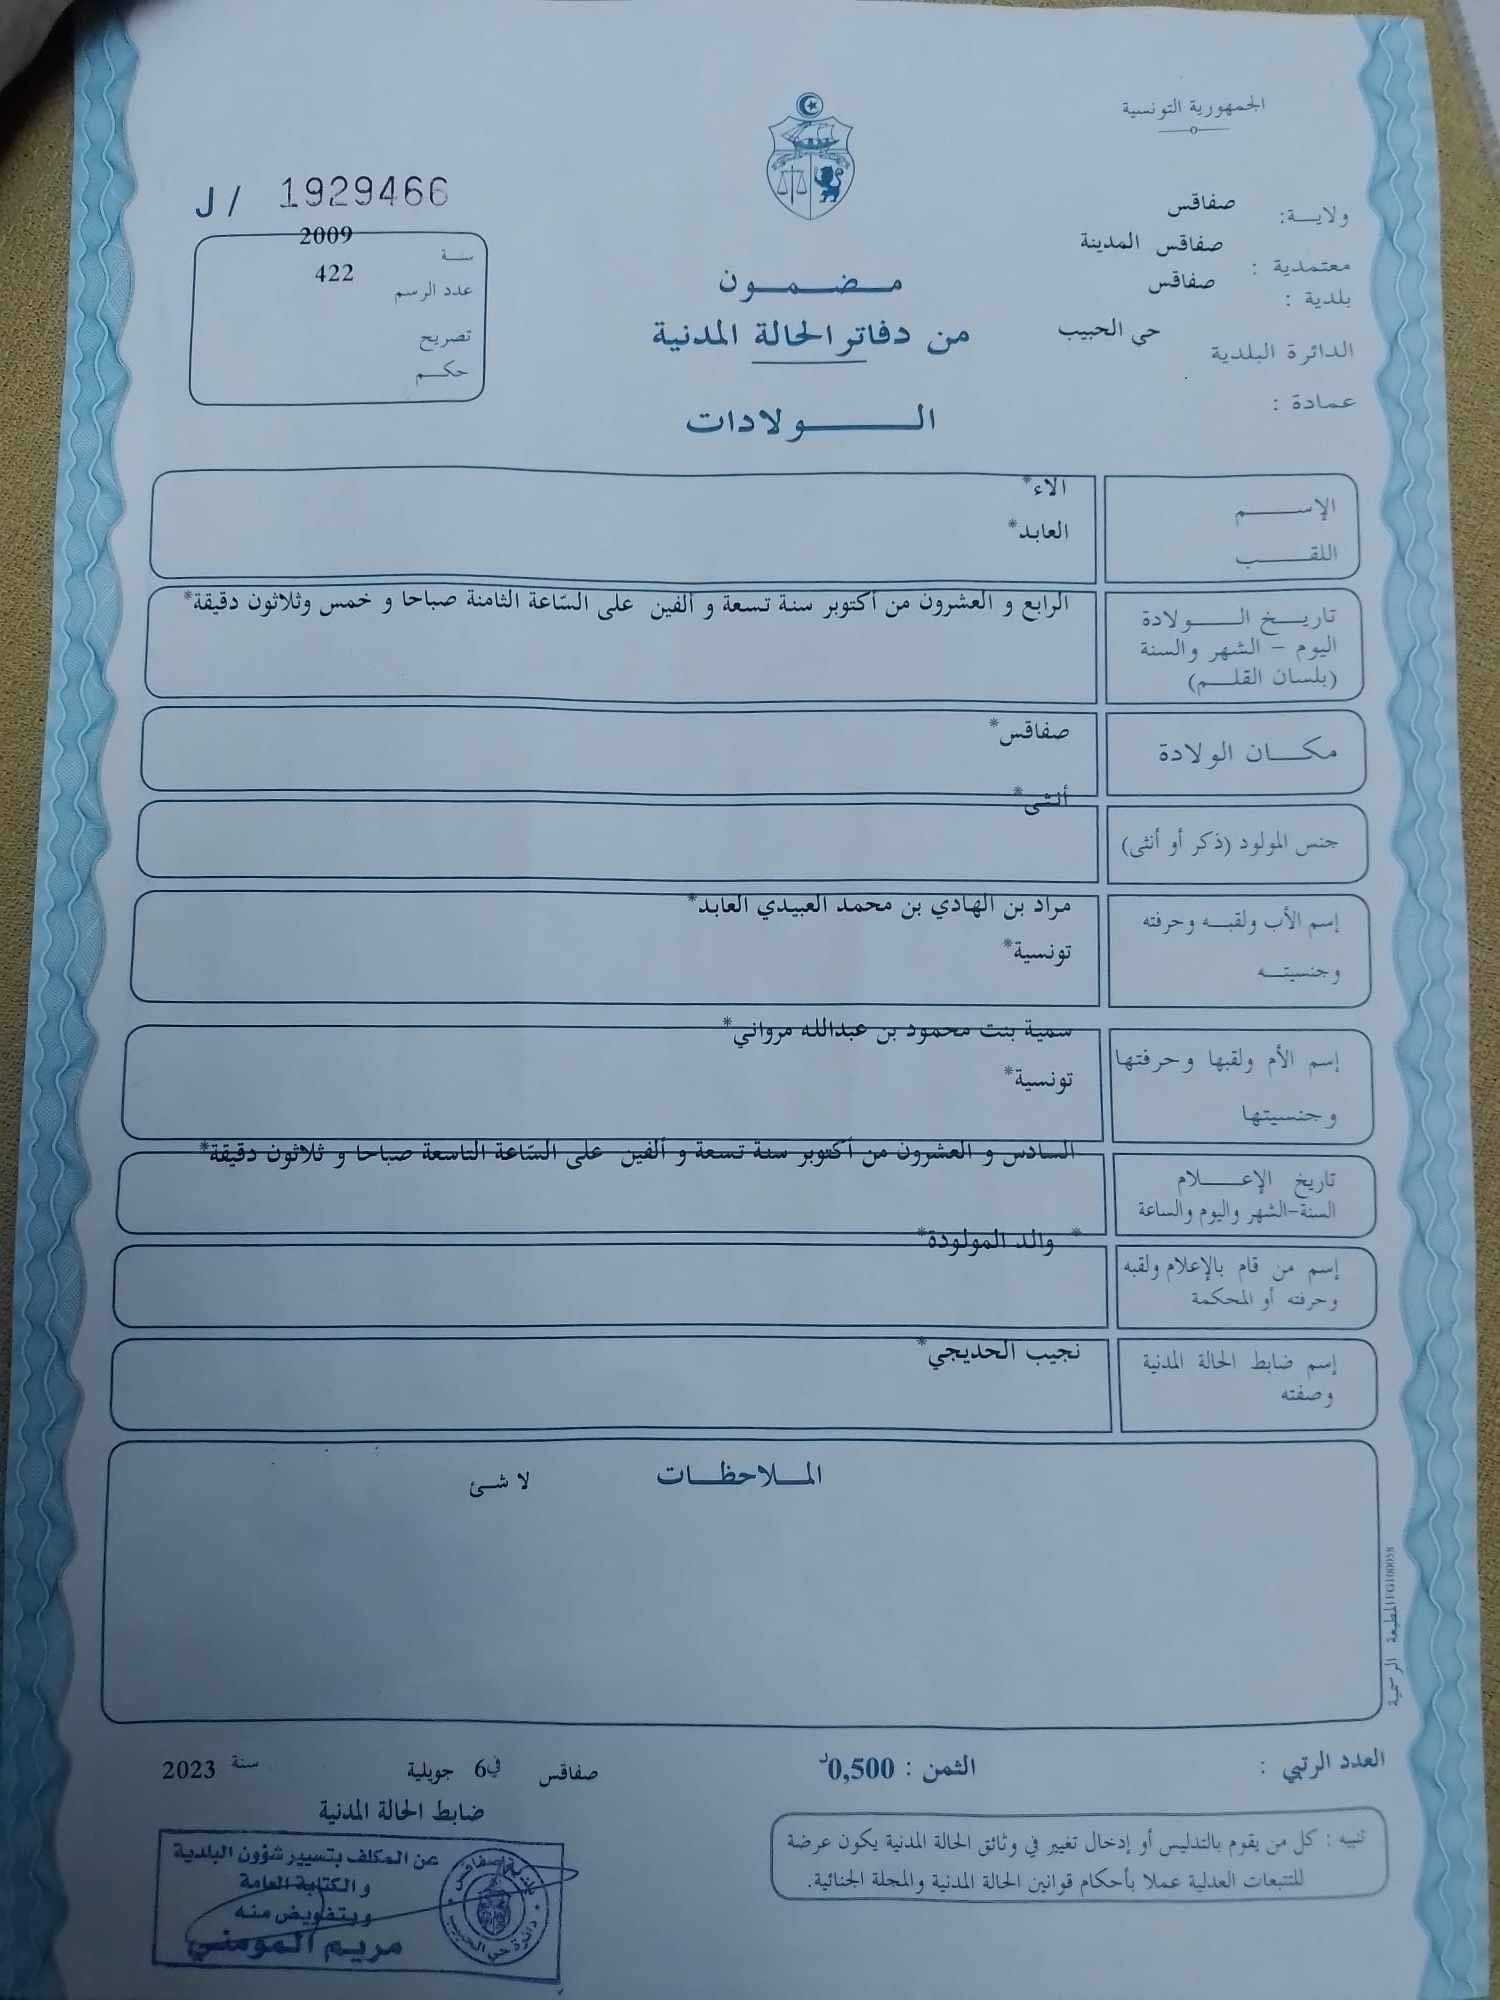 الجمهورية التونسية
ولايــة: صفاقس
معتمدية : صفاقس المدينة
بلدية : صفاقس
الدائرة البلدية حي الحبيب
عمادة :
J / 1929466
سنــة 2009
عدد الرسم 422
تصريح
حكــم
مــضــمــون
من دفاتر الحالة المدنية
الــــولادات
الإســــم الاء*
اللقــــب العابد*
تاريــخ الـــولادة الرابع و العشرون من أكتوبر سنة تسعة و ألفين على السّاعة الثامنة صباحا و خمس وثلاثون دقيقة*
اليوم - الشهر والسنة
(بلسان القلــم)
مكــان الولادة صفاقس*
جنس المولود (ذكر أو أنثى) أنثى*
إسم الأب ولقبــه وحرفته مراد بن الهادي بن محمد العبيدي العابد*
وجنسيتــه تونسية*
إسم الأم ولقبها وحرفتها سمية بنت محمود بن عبدالله مرواني*
وجنسيتها تونسية*
تاريخ الإعـــلام السادس و العشرون من أكتوبر سنة تسعة و ألفين على السّاعة التاسعة صباحا و ثلاثون دقيقة*
السنة-الشهر واليوم والساعة
إسم من قام بالإعلام ولقبه * والد المولودة*
وحرفته أو المحكمة
إسم ضابط الحالة المدنية نجيب الحديجي*
وصفته
الملاحظــات
لا شئ
المطبعة الرسمية
العدد الرتبي :
الثمن : 0,500د
صفاقس في 6 جويلية سنة 2023
ضابط الحالة المدنية
تنبيه : كل من يقوم بالتدليس أو إدخال تغيير في وثائق الحالة المدنية يكون عرضة
للتتبعات العدلية عملا بأحكام قوانين الحالة المدنية والمجلة الجنائية.
عن المكلف بتسيير شؤون البلدية
والكتابة العامة
وبتفويض منه
مريم المومني
بلدية صفاقس
دائرة حي الحبيب